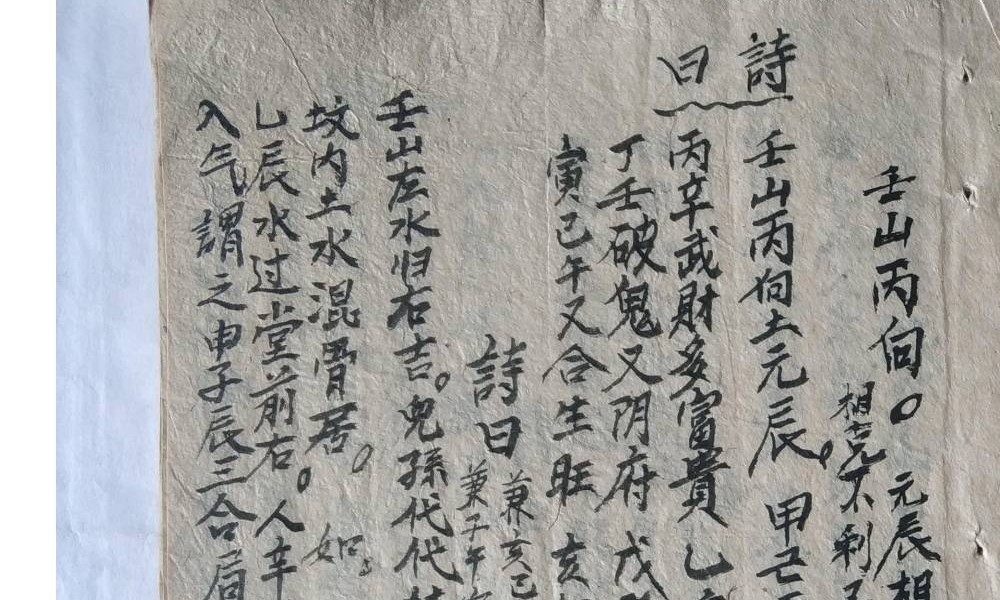 壬山丙向。元辰相
相克不利
詩曰
壬山丙向土元辰。甲己
丙辛武財多富貴乙
丁壬破鬼又阴府戊
寅己午又合生旺亥
詩曰
兼亥己
兼子午
壬山左水归右吉。兒孫代代
坟内土水混骨居。如
乙辰水过堂前右。人辛
入气謂之申子辰三合局